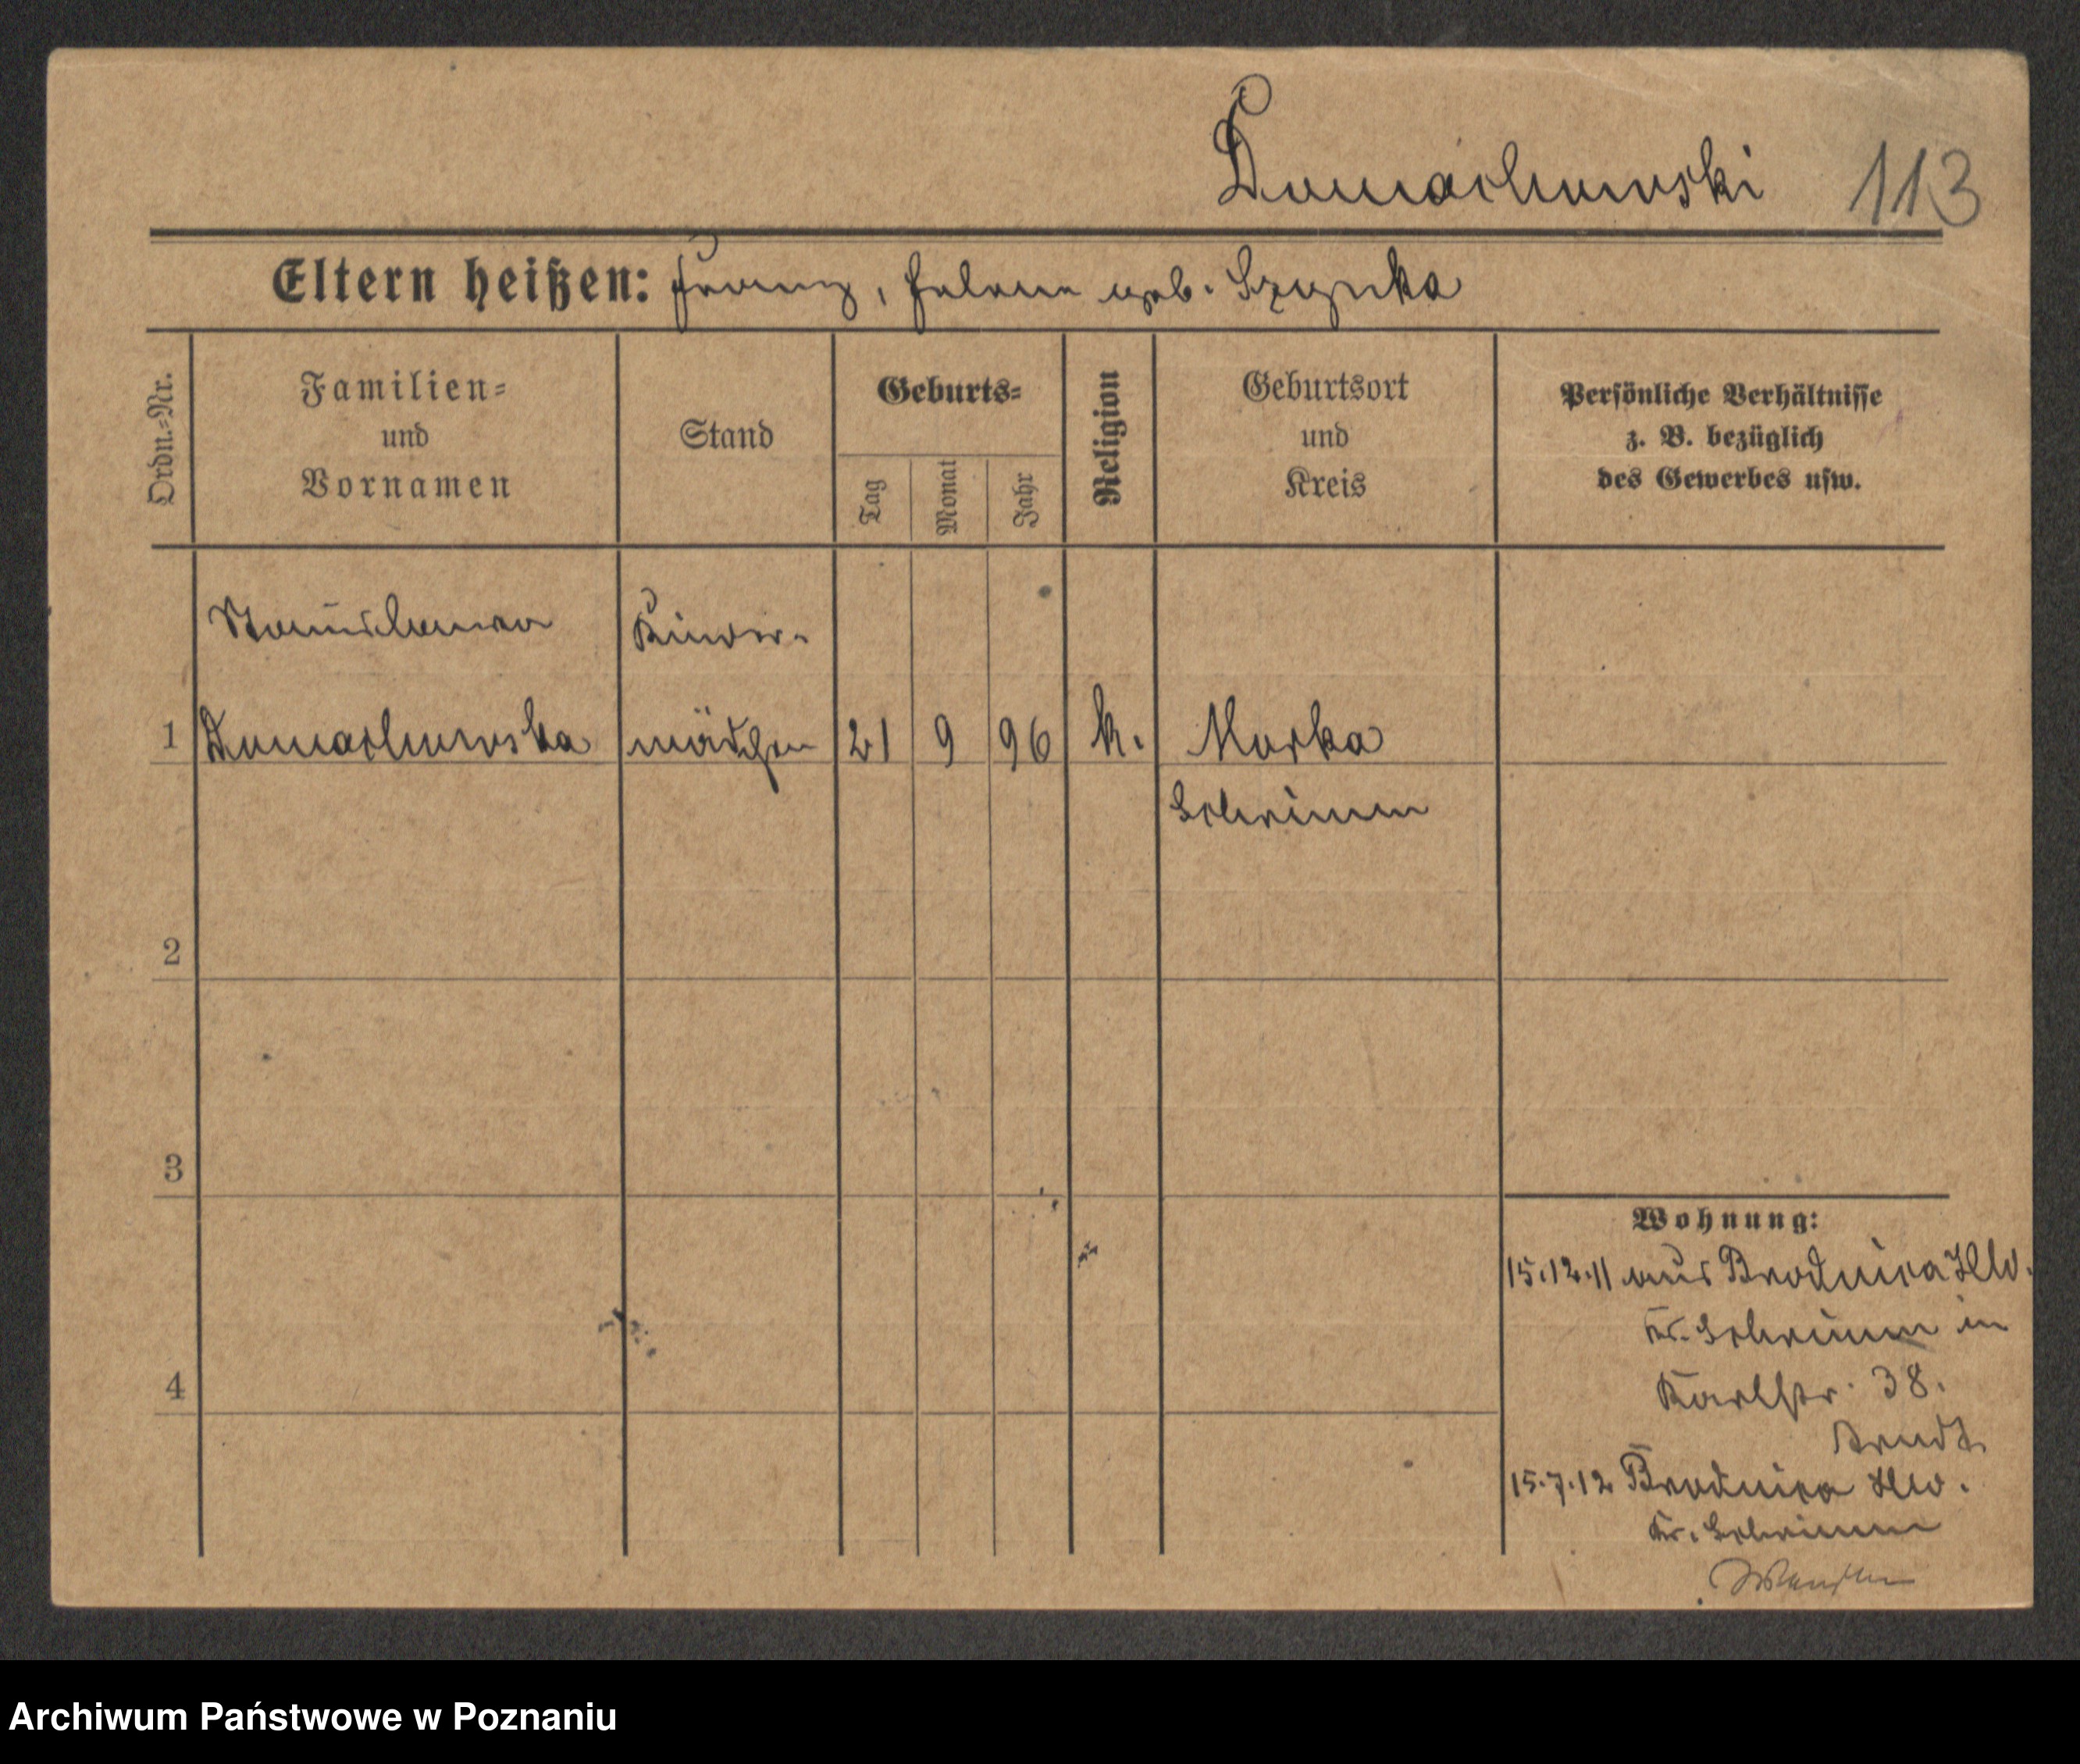 Domachowski 113
Eltern heißen: Franz, Helene geb. Szypska
Ordn.-Nr.
Familien-
und
Vornamen
Stand
Geburts-
Tag
Monat
Jahr
Religion
Geburtsort
und
Kreis
Persönliche Verhältnisse
z. B. bezüglich
des Gewerbes usw.
Stanislawa Kinder-
1 Domachowska mädchen 21 9 96 k. Morka
Schrimm
2
3
4
Wohnung:
15.12.11 aus Brodnica
Kr. Schrimm in
Karlstr. 38.
Arndt
15.7.12 Brodnica
Kr. Schrimm
Archiwum Państwowe w Poznaniu